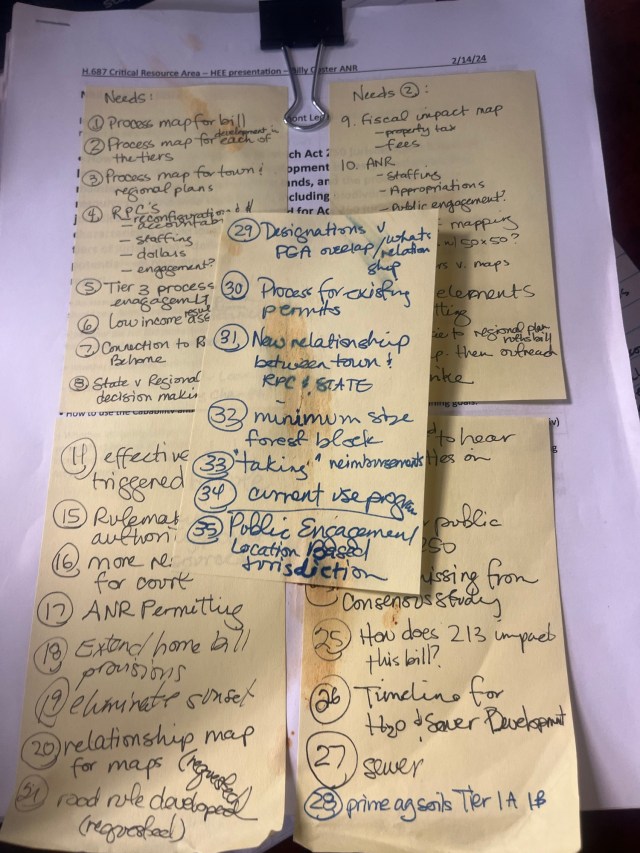 H.687 Critical Resource Area – HEE presentation – Billy Coster ANR 2/14/24
Needs:
① Process map for bill
② Process map for development in each of
the tiers
③ Process map for town &
regional plans
④ RPC's
– reconfiguration &
accountab
– staffing
– dollars
– engagement?
⑤ Tier 3 process
engagement
⑥ Low income
⑦ Connection to B
Behome
⑧ State v Regional
decision makin
Needs ②:
9. fiscal impact map
– property tax
– fees
10. ANR
– staffing
– Appropriations
– Public engagement?
mapping
w/ 50x50?
rs v. maps
elements
tting
to regional plan
p. then outreach
rike
ont Le
ch Act 2
opment
nds, and
cluding
d for Ac
㉙ Designations v
PGA overlap/whats
relation
ship
㉚ Process for existing
permits
㉛ New relationship
between town &
RPC & STATE
㉜ minimum size
forest block
㉝ "taking" reimbursements
㉞ current use program
㉟ Public Engagement
Location Based
Jurisdiction
• How to use the Capability and
ning goals.
effective
triggered
⑮ Rulemak
authori
⑯ more re
for court
⑰ ANR Permitting
⑱ Extend home bill
provisions
⑲ eliminate sunset
⑳ relationship map
for maps (requested)
road rule developed
(requested)
to hear
ties on
public
250
issing from
Consensus study
㉕ How does 213 impact
this bill?
㉖ Timeline for
H2O & Sewer Development
㉗ sewer
㉘ prime ag soils Tier 1A 1B